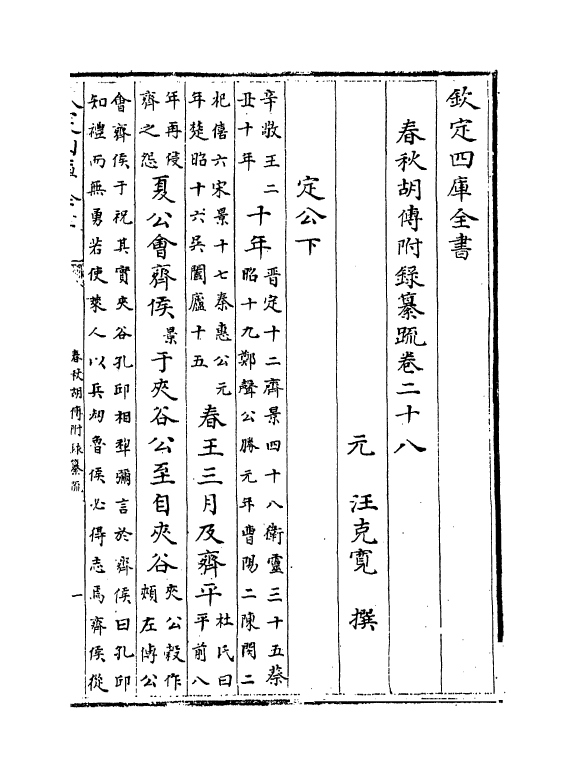 欽定四庫全書
春秋胡傳附錄纂疏卷二十八
元 汪克寬 撰
定公下
辛敬王二
丑十年
十年
晉定十二齊景四十八衛靈三十五蔡
昭十九鄭聲公勝元年曹陽二陳閔二
杞僖六宋景十七秦惠公元
年楚昭十六吳闔廬十五
春王三月及齊平
杜氏曰
平前八
年再侵
齊之怨
夏公會齊侯景于夾谷公至自夾谷
夾公穀作
頰左傳公
會齊侯于祝其實夾谷孔邱相犂彌言於齊侯曰孔邱
知禮而無勇若使萊人以兵刼魯侯必得志焉齊侯從
春秋胡傳附錄纂疏
一